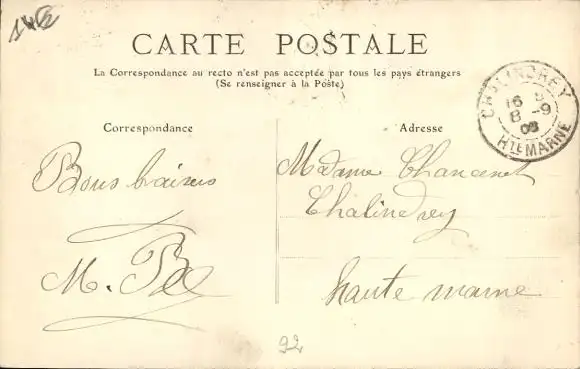 CARTE POSTALE
La Correspondance au recto n'est pas acceptée par tous les pays étrangers
(Se renseigner à la Poste)
CHALINDREY
8 -9
08
HTE MARNE
Correspondance
Adresse
Bons baisers
M. B
Madame
Chalindrey
haute marne
92